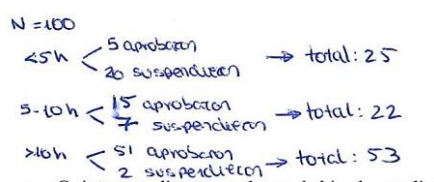 N = 100
<5h < 5 aprobaron
20 suspendieron → total: 25
5-10h < 15 aprobaron
7 suspendieron → total: 22
>10h < 51 aprobaron
2 suspendieron → total: 53